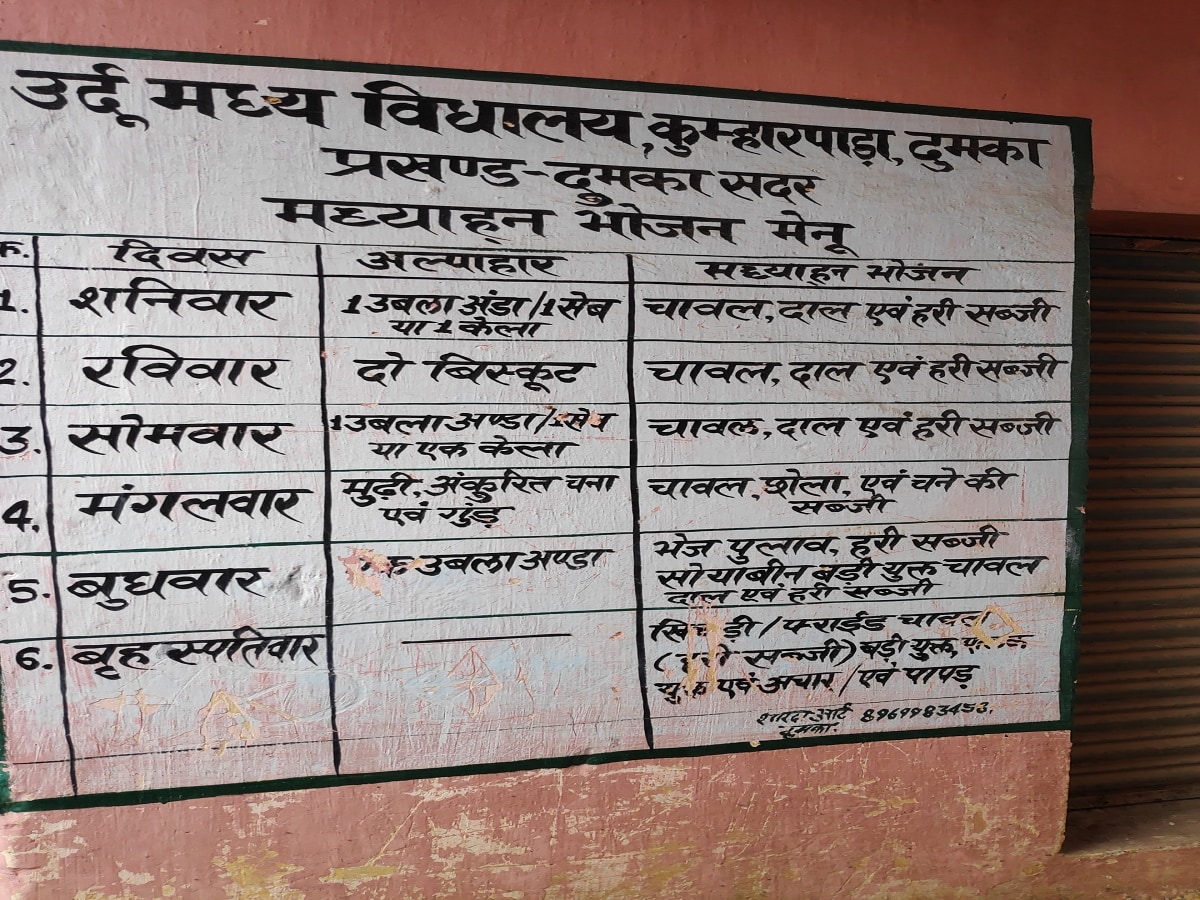 उर्दू मध्य विद्यालय, कुम्हारपाड़ा, दुमका
प्रखण्ड-दुमका सदर
मध्याह्न भोजन मेनू
क. दिवस अल्पाहार मध्याह्न भोजन
1. शनिवार 1 उबला अंडा/1 सेब या 1 केला चावल, दाल एवं हरी सब्जी
2. रविवार दो बिस्कूट चावल, दाल एवं हरी सब्जी
3. सोमवार 1 उबला अण्डा/1 सेब या एक केला चावल, दाल एवं हरी सब्जी
4. मंगलवार मुढ़ी, अंकुरित चना एवं गुड़ चावल, छोला, एवं चने की सब्जी
5. बुधवार उबला अण्डा भेज पुलाव, हरी सब्जी सोयाबीन बड़ी युक्त चावल दाल एवं हरी सब्जी
6. बृहस्पतिवार खिचड़ी/फ्राईड चावल (हरी सब्जी) बड़ी युक्त एवं अचार/एवं पापड़
शारदा आर्ट 8969983453.
दुमका.